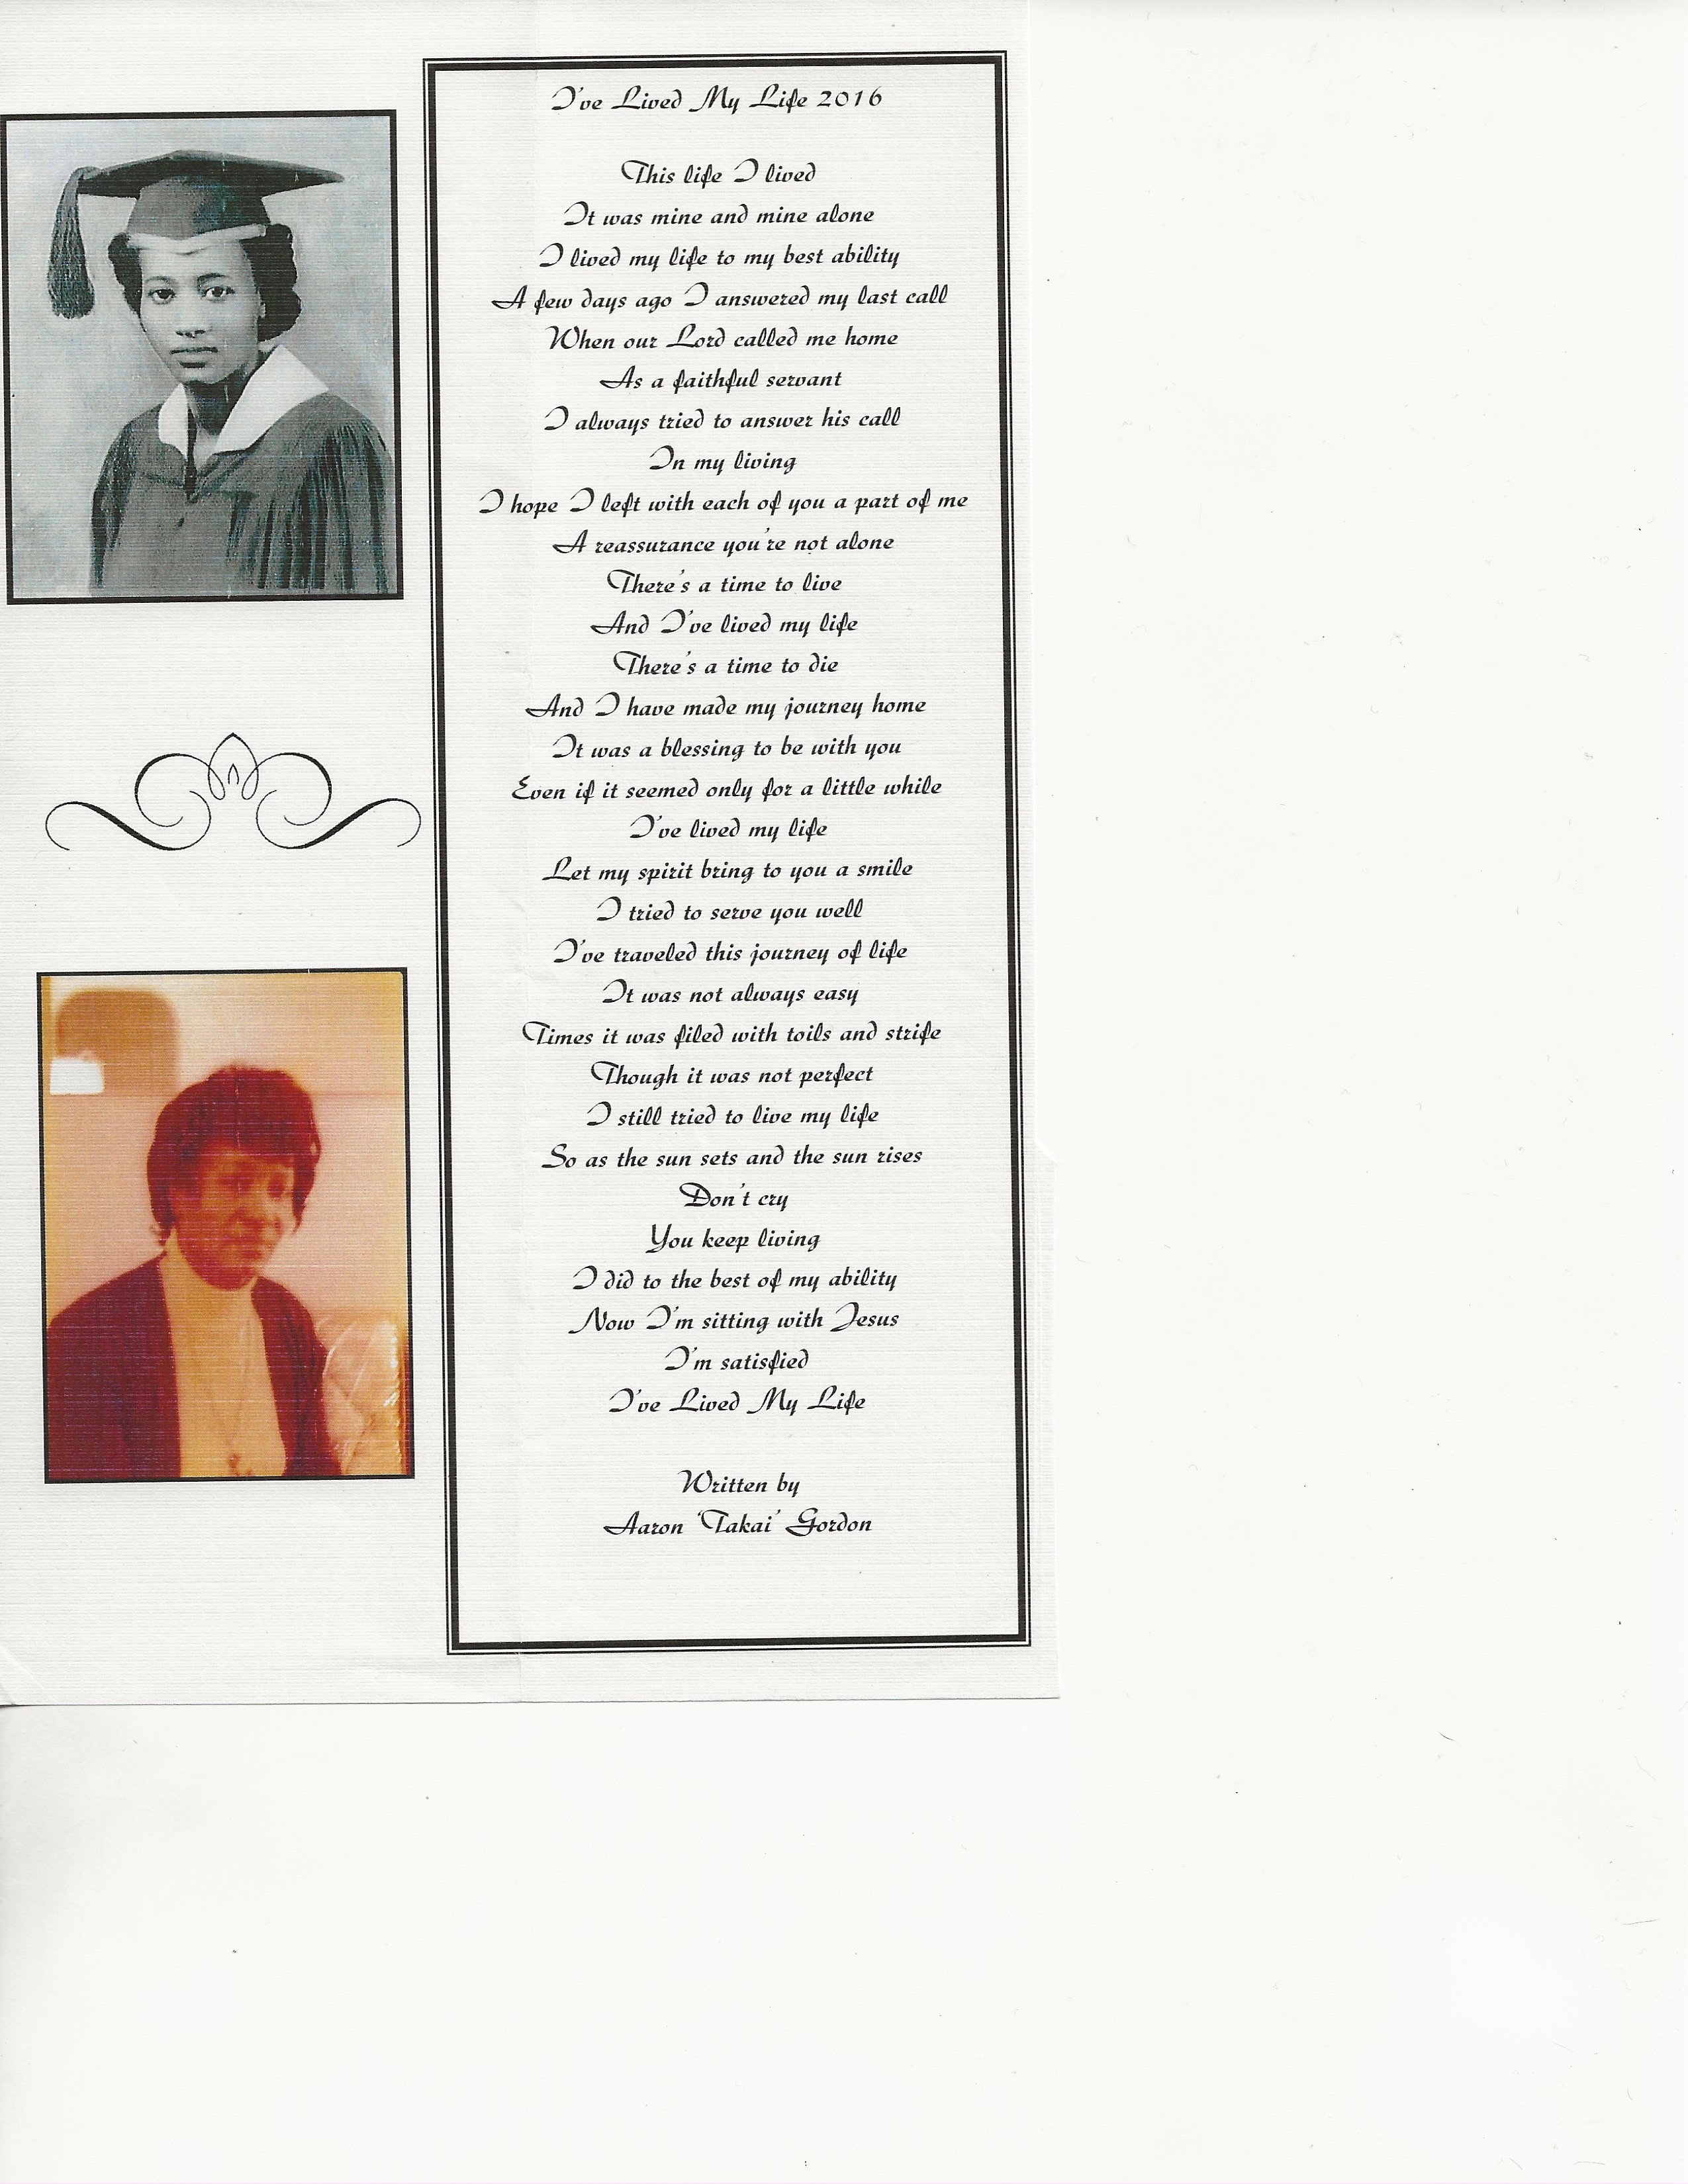 I've Lived My Life 2016
This life I lived
It was mine and mine alone
I lived my life to my best ability
A few days ago I answered my last call
When our Lord called me home
As a faithful servant
I always tried to answer his call
In my living
I hope I left with each of you a part of me
A reassurance you're not alone
There's a time to live
And I've lived my life
There's a time to die
And I have made my journey home
It was a blessing to be with you
Even if it seemed only for a little while
I've lived my life
Let my spirit bring to you a smile
I tried to serve you well
I've traveled this journey of life
It was not always easy
Times it was filed with toils and strife
Though it was not perfect
I still tried to live my life
So as the sun sets and the sun rises
Don't cry
You keep living
I did to the best of my ability
Now I'm sitting with Jesus
I'm satisfied
I've Lived My Life
Written by
Aaron 'Takai' Gordon